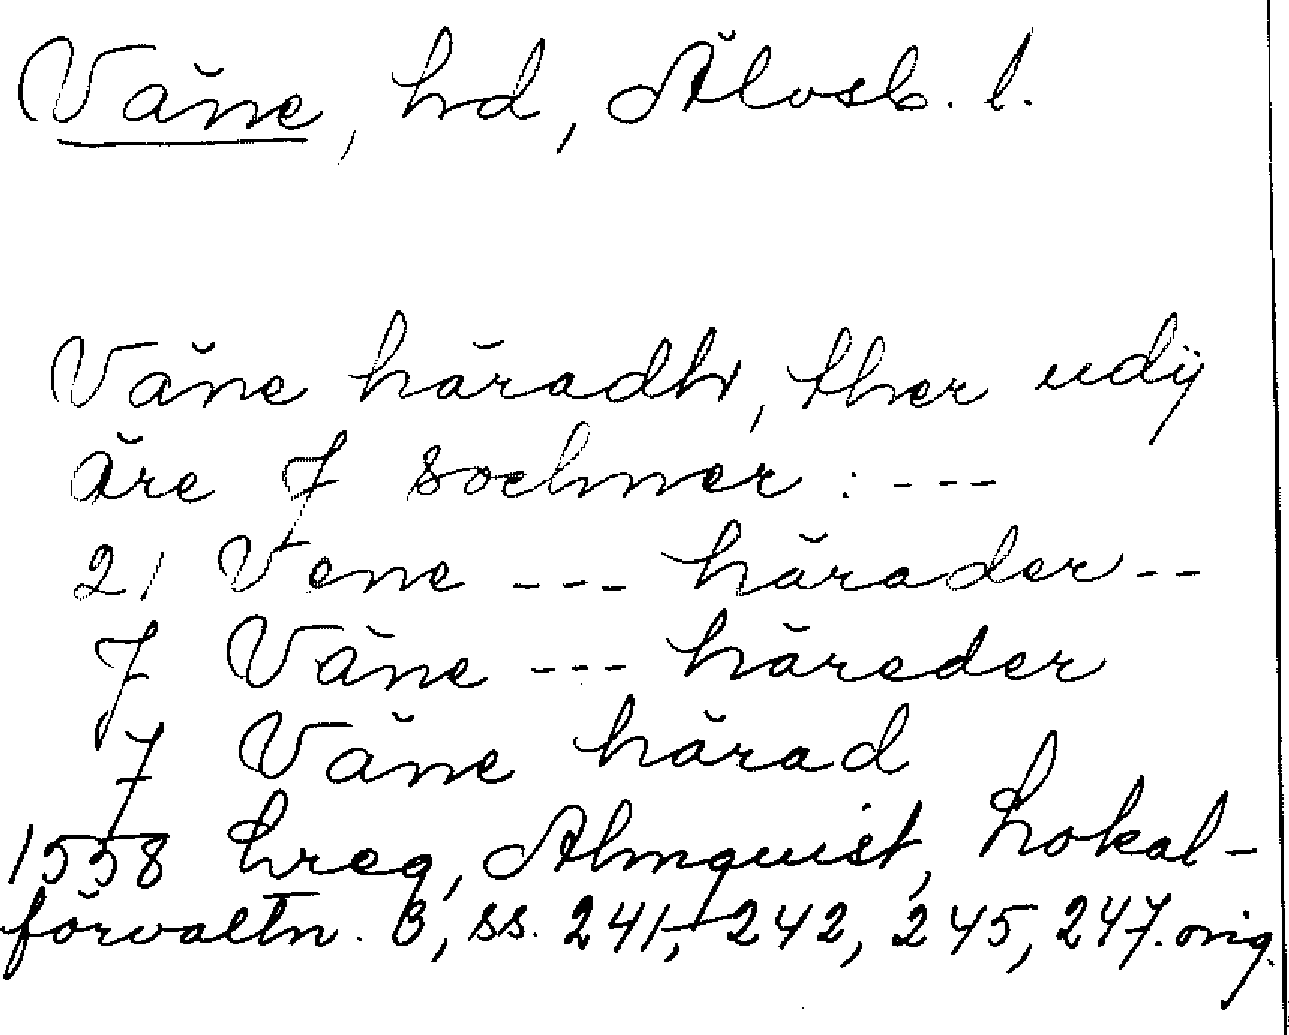 Väne, hd, Älvsb. l.
Väne häradh, ther udÿ
äre 7 sochner: ---
21 Vene --- härader --
7 Väne --- häreder
7 Väne härad
1558 hreg, Almquist, Lokal-
förvaltn. B, ss. 241, 242, 245, 247. orig.